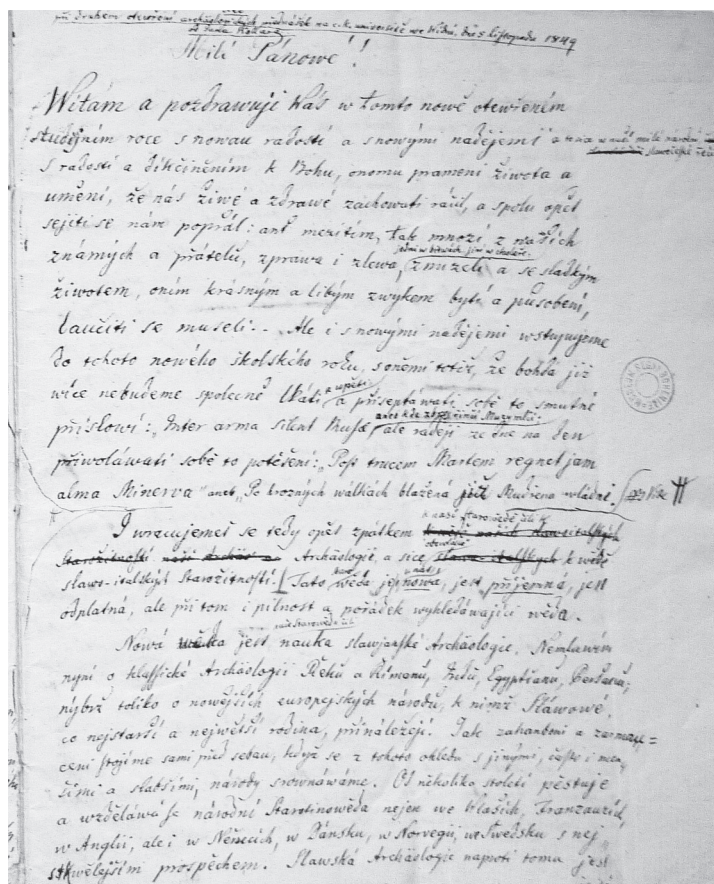 při druhem otevření archäologických přednášek na c.k. universitě we Widni, dne 5 listopadu 1849
od Jana Kollára
Milí Pánowé!
Witám a pozdrawuji Wás w tomto nowě otewřeném
studijním roce s nowau radostí a s nowými nadějemi
s radostí a díkčiněním k Bohu, onomu prameni žiwota a
umění, že nás žiwé a zdrawé zachowati ráčil, a spolu opět
sejíti se nám popřál: ant mezitím, tak mnozí z našich
jedni w bitwách, jiní w choleře,
známých a přátelů, zprawa i zlewa, zmizeli a se sladkým
žiwotem, oním krásným a libým zwykem bytí a působení,
laučiti se museli. - Ale i s nowými nadějemi wstupujeme
do tohoto nowého školského roku, s oněmi totiž, že bohdá již
wíce nebudeme společně lkáti a úpěti a přišeptáwati sobě to smutné
příslowí: "Inter arma silent Musæ, ale raději ze dne na den
přiwoláwati sobě to potěšení: "Post trucem Martem regnet jam
alma Minerva" anet, "Po hrozných wálkách blažená již Mudřena wládni.
I wracujemeš se tedy opět zpátkem
k naší Starowědě čili k
Starožitnosti Archäologii, a sice k wědě
slawo-italských Starožitností. Tato wěda jest nowa, jest příjemná, jest
odplatná, ale při tom i pilnost a pořádek wyhledáwající wěda.
Nowá jest nauka slawjanské Archäologie. Nemluwím
nyní o klassické Archäologii Řeků a Římanů, Indů, Egyptianů, Peršanů,
nýbrž toliko o nowějších europejských národů, k nimž Sláwowé,
co nejstarší a největší rodina, přináležejí. Tak zahanbeni a zarmau=
ceni stojíme sami před sebau, když se z tohoto ohledu s jinými, často i men
šími a slabšími, národy srownáwáme. Od několika století pěstuje
a wzděláwá se národní Starotinowěda nejen we Wlaších, Franzauzích,
w Anglii, ale i w Němcích, w Dánsku, w Norwegii, we Swédsku s nej
skwělejším prospěchem. Slawská Archäologie naproti tomu jest